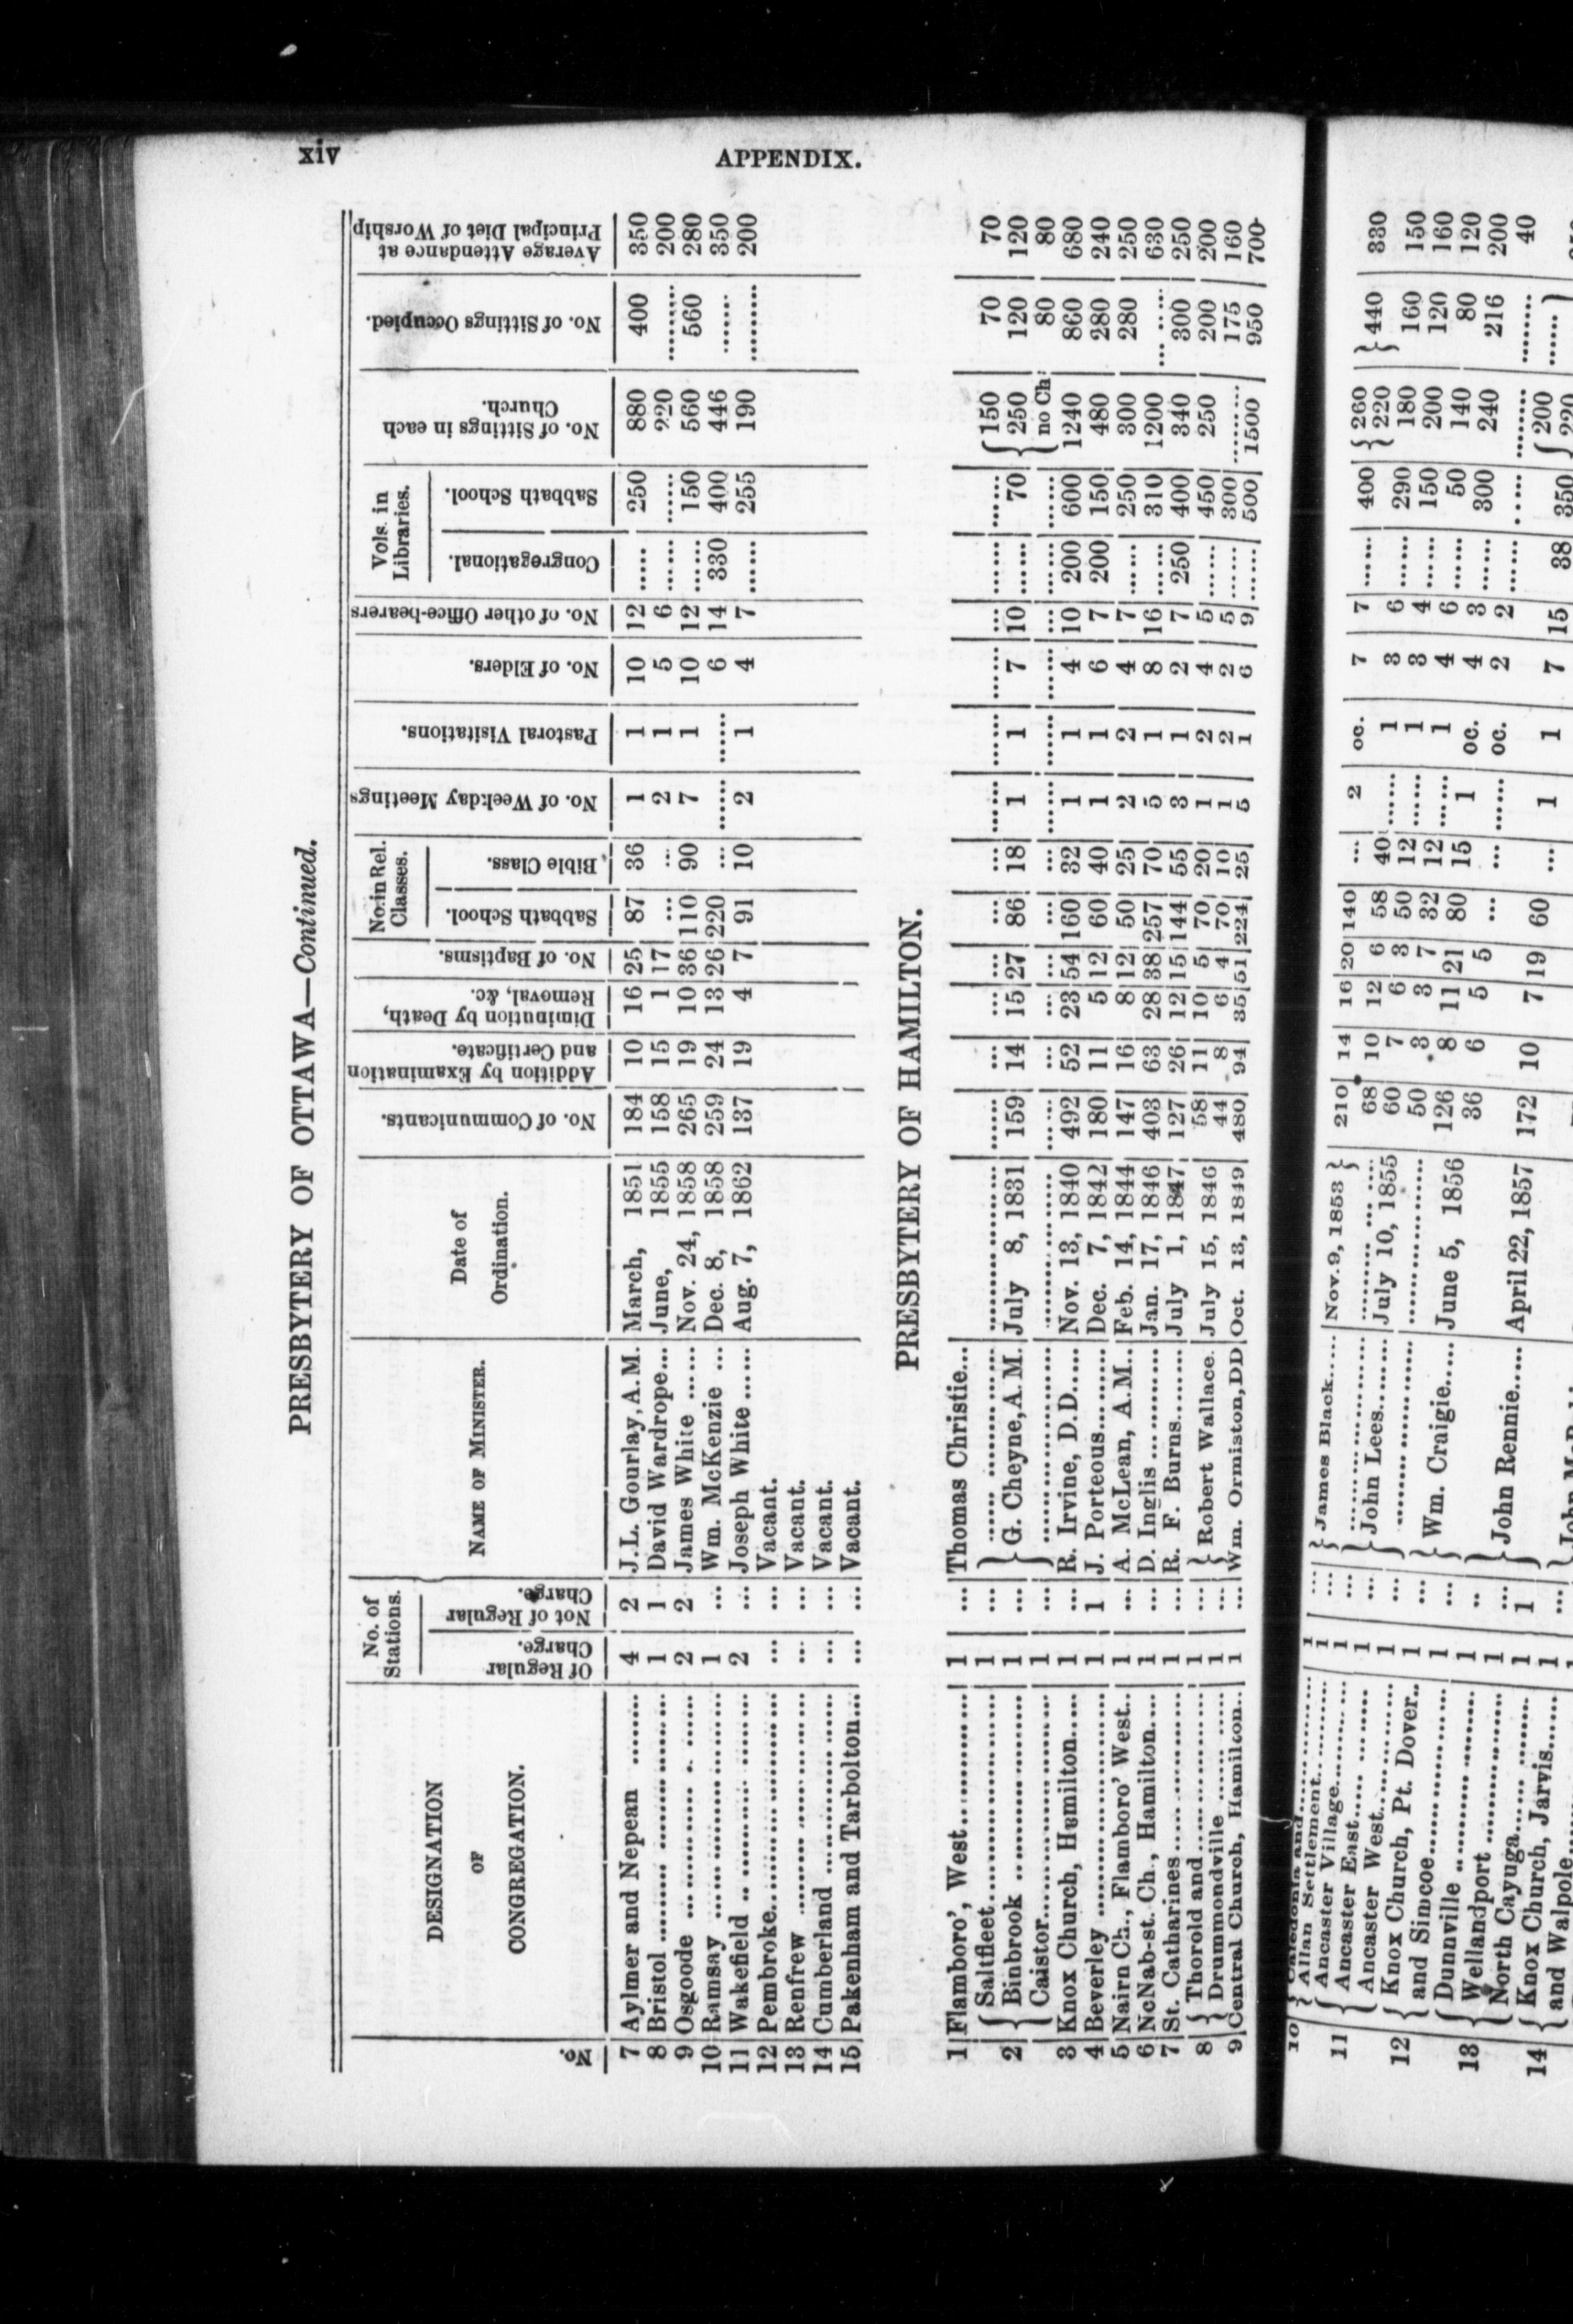 xiv
APPENDIX.
PRESBYTERY OF OTTAWA—Continued.
No.
DESIGNATION
OF
CONGREGATION.
No. of
Stations.
Of Regular
Charge.
Not of Regular
Charge.
NAME OF MINISTER.
Date of
Ordination.
No. of Communicants.
Addition by Examination
and Certificate.
Diminution by Death,
Removal, &c.
No. of Baptisms.
No. in Rel.
Classes.
Sabbath School.
Bible Class.
No. of Weekday Meetings
Pastoral Visitations.
No. of Elders.
No. of other Office-bearers
Vols. in
Libraries.
Congregational.
Sabbath School.
No. of Sittings in each
Church.
No. of Sittings Occupied.
Average Attendance at
Principal Diet of Worship
7 Aylmer and Nepean ........ 4 2 J. L. Gourlay, A. M. March, 1851 184 10 16 25 87 36 1 1 10 12 ...... 250 880 400 350
8 Bristol ........ 1 1 David Wardrope... June, 1855 158 15 1 17 ... ... 2 1 5 6 ...... ...... 220 ........ 200
9 Osgoode ........ 2 2 James White ...... Nov. 24, 1858 265 19 10 36 110 90 7 1 10 12 ...... 150 560 560 280
10 Ramsay ........ 1 ... Wm. McKenzie ... Dec. 8, 1858 259 24 13 26 220 ... ...... ...... 6 14 330 400 446 ........ 350
11 Wakefield ........ 2 ... Joseph White ...... Aug. 7, 1862 137 19 4 7 91 10 2 1 4 7 ...... 255 190 ........ 200
12 Pembroke........ ... ... Vacant.
13 Renfrew ........ ... ... Vacant.
14 Cumberland ........ ... ... Vacant.
15 Pakenham and Tarbolton... ... ... Vacant.
PRESBYTERY OF HAMILTON.
1 Flamboro', West........ 1 ... Thomas Christie...
2 { Saltfleet........ 1 ... } ........ ........ ...... ... ... ... ... ... ...... ...... ...... ... ...... ...... { 150 70 70
Binbrook ........ 1 ... G. Cheyne, A. M. July 8, 1831 159 14 15 27 86 18 1 1 7 10 ...... 70 250 120 120
Caistor........ 1 ... ........ ........ ...... ... ... ... ... ... ...... ...... ...... ... ...... ...... no Ch 80 80
3 Knox Church, Hamilton..... 1 ... R. Irvine, D. D..... Nov. 13, 1840 492 52 23 54 160 32 1 1 4 10 200 600 1240 860 680
4 Beverley ........ 1 1 J. Porteous........ Dec. 7, 1842 180 11 5 12 60 40 1 1 6 7 200 150 480 280 240
5 Nairn Ch., Flamboro' West.. 1 ... A. McLean, A. M.. Feb. 14, 1844 147 16 8 12 50 25 2 2 4 7 ...... 250 300 280 250
6 McNab-st. Ch., Hamilton.... 1 ... D. Inglis ........ Jan. 17, 1846 403 63 28 38 257 70 5 1 8 16 ...... 310 1200 ........ 630
7 St. Catharines ........ 1 ... R. F. Burns........ July 1, 1847 127 26 12 15 144 55 3 1 2 7 250 400 340 300 250
8 { Thorold and ........ 1 ... } Robert Wallace. July 15, 1846 58 11 10 5 70 20 1 2 4 5 ...... 450 250 200 200
Drummondville ........ 1 ... 44 8 6 4 70 10 1 2 2 5 ...... 300 ........ 175 160
9 Central Church, Hamilton.. 1 ... Wm. Ormiston, DD Oct. 13, 1849 480 94 35 51 224 25 5 1 6 9 ...... 500 1500 950 700
10 { Caledonia and........ 1 ... } James Black..... Nov. 9, 1853 } 210 14 16 20 140 ... 2 oc. 7 7 ...... 400 { 260 } 440 330
Allan Settlement........ 1 ... 220
11 { Ancaster Village........ 1 ... } ........ ........ 68 10 12 6 58 40 ...... 1 3 6 ...... 290 180 160 150
Ancaster East........ 1 ... John Lees........ July 10, 1855 60 7 6 3 50 12 ...... 1 3 4 ...... 150 200 120 160
Ancaster West........ 1 ... ........ ........ 50 3 3 7 32 12 ...... 1 4 6 ...... 50 140 80 120
12 { Knox Church, Pt. Dover.. 1 ... } Wm. Craigie..... June 5, 1856 126 8 11 21 80 15 1 oc. 4 3 ...... 300 240 216 200
and Simcoe........ 1 36 6 5 5 ... ... ...... oc. 2 2 ...... ...... ........ ........ 40
13 { Dunnville ........ 1
Wellandport ........ 1 ... } John Rennie...... April 22, 1857 172 10 7 19 60 ... 1 1 7 15 38 350 { 200
North Cayuga........ 1 1 220
14 { Knox Church, Jarvis...... 1 ...
and Walpole....